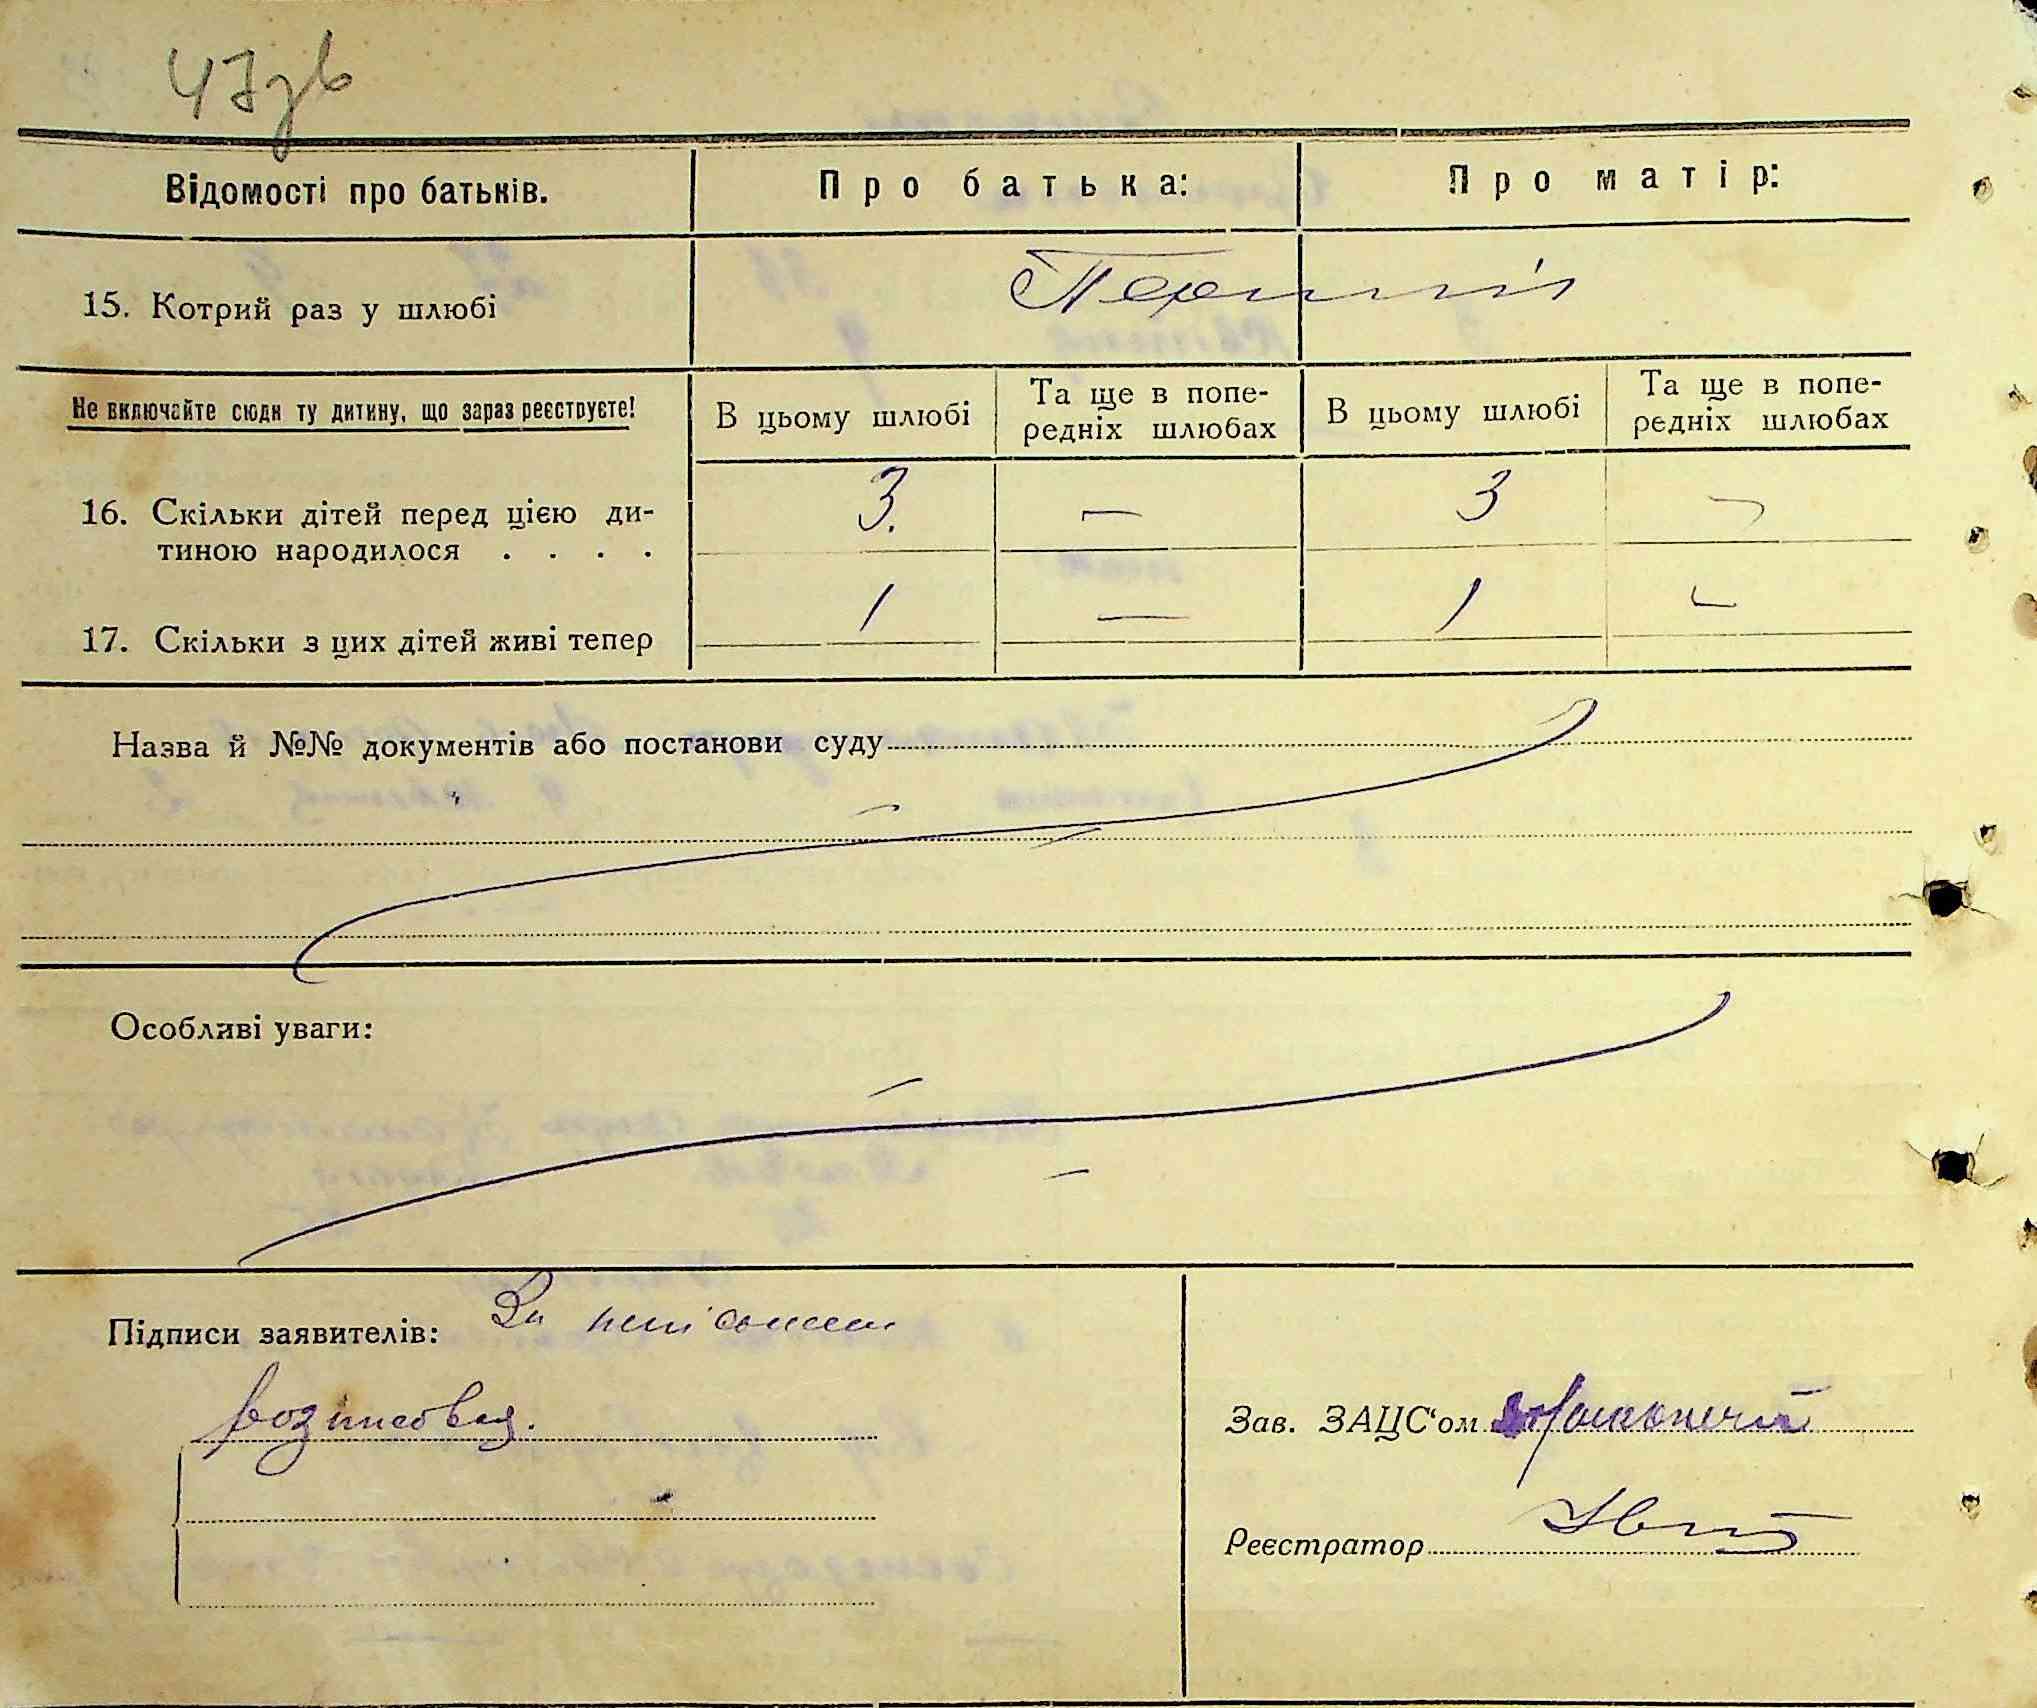 47зв
Відомості про батьків.
Про батька:
Про матір:
15. Котрий раз у шлюбі
Перший
Не включайте сюди ту дитину, що зараз реєструєте!
В цьому шлюбі
Та ще в попе-
редніх шлюбах
В цьому шлюбі
Та ще в попе-
редніх шлюбах
16. Скільки дітей перед цією ди-
тиною народилося . . . .
3.
—
3
—
17. Скільки з цих дітей живі тепер
1
—
1
—
Назва й №№ документів або постанови суду
Особливі уваги:
Підписи заявителів:
За
розписався.
Зав. ЗАЦС'ом
Реєстратор